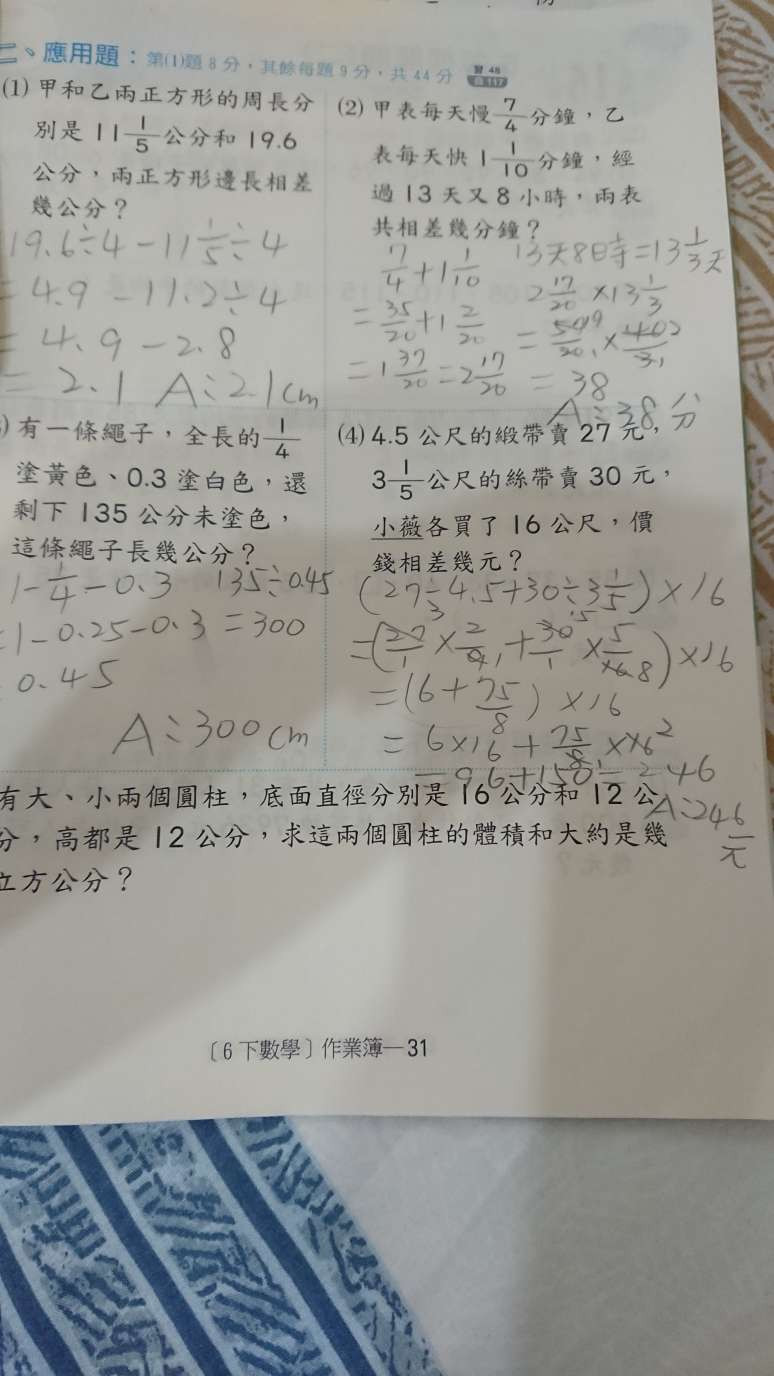 二、應用題：第⑴題 8 分，其餘每題 9 分，共 44 分 習 48 白 117
(1) 甲和乙兩正方形的周長分
別是 11 1/5 公分和 19.6
公分，兩正方形邊長相差
幾公分？
19.6÷4-11 1/5÷4
=4.9-11.2÷4
=4.9-2.8
=2.1 A:2.1cm
(2) 甲表每天慢 7/4 分鐘，乙
表每天快 1 1/10 分鐘，經
過 13 天又 8 小時，兩表
共相差幾分鐘？
7/4+1 1/10 13天8時=13 1/3天
=35/20+1 2/20 2 17/20×13 1/3
=1 37/20=2 17/20 =38
A:38分
)有一條繩子，全長的 1/4
塗黃色、0.3 塗白色，還
剩下 135 公分未塗色，
這條繩子長幾公分？
1-1/4-0.3 135÷0.45
=1-0.25-0.3 =300
0.45
A:300cm
(4) 4.5 公尺的緞帶賣 27 元，
3 1/5 公尺的絲帶賣 30 元，
小薇各買了 16 公尺，價
錢相差幾元？
(27÷4.5+30÷3 1/5)×16
=(27/1×2/9+30/1×5/16)×16
=(6+75/8)×16
=6×16+75/8×16
=96+150=246
A:246元
有大、小兩個圓柱，底面直徑分別是 16 公分和 12 公
分，高都是 12 公分，求這兩個圓柱的體積和大約是幾
立方公分？
〔6 下數學〕作業簿—31